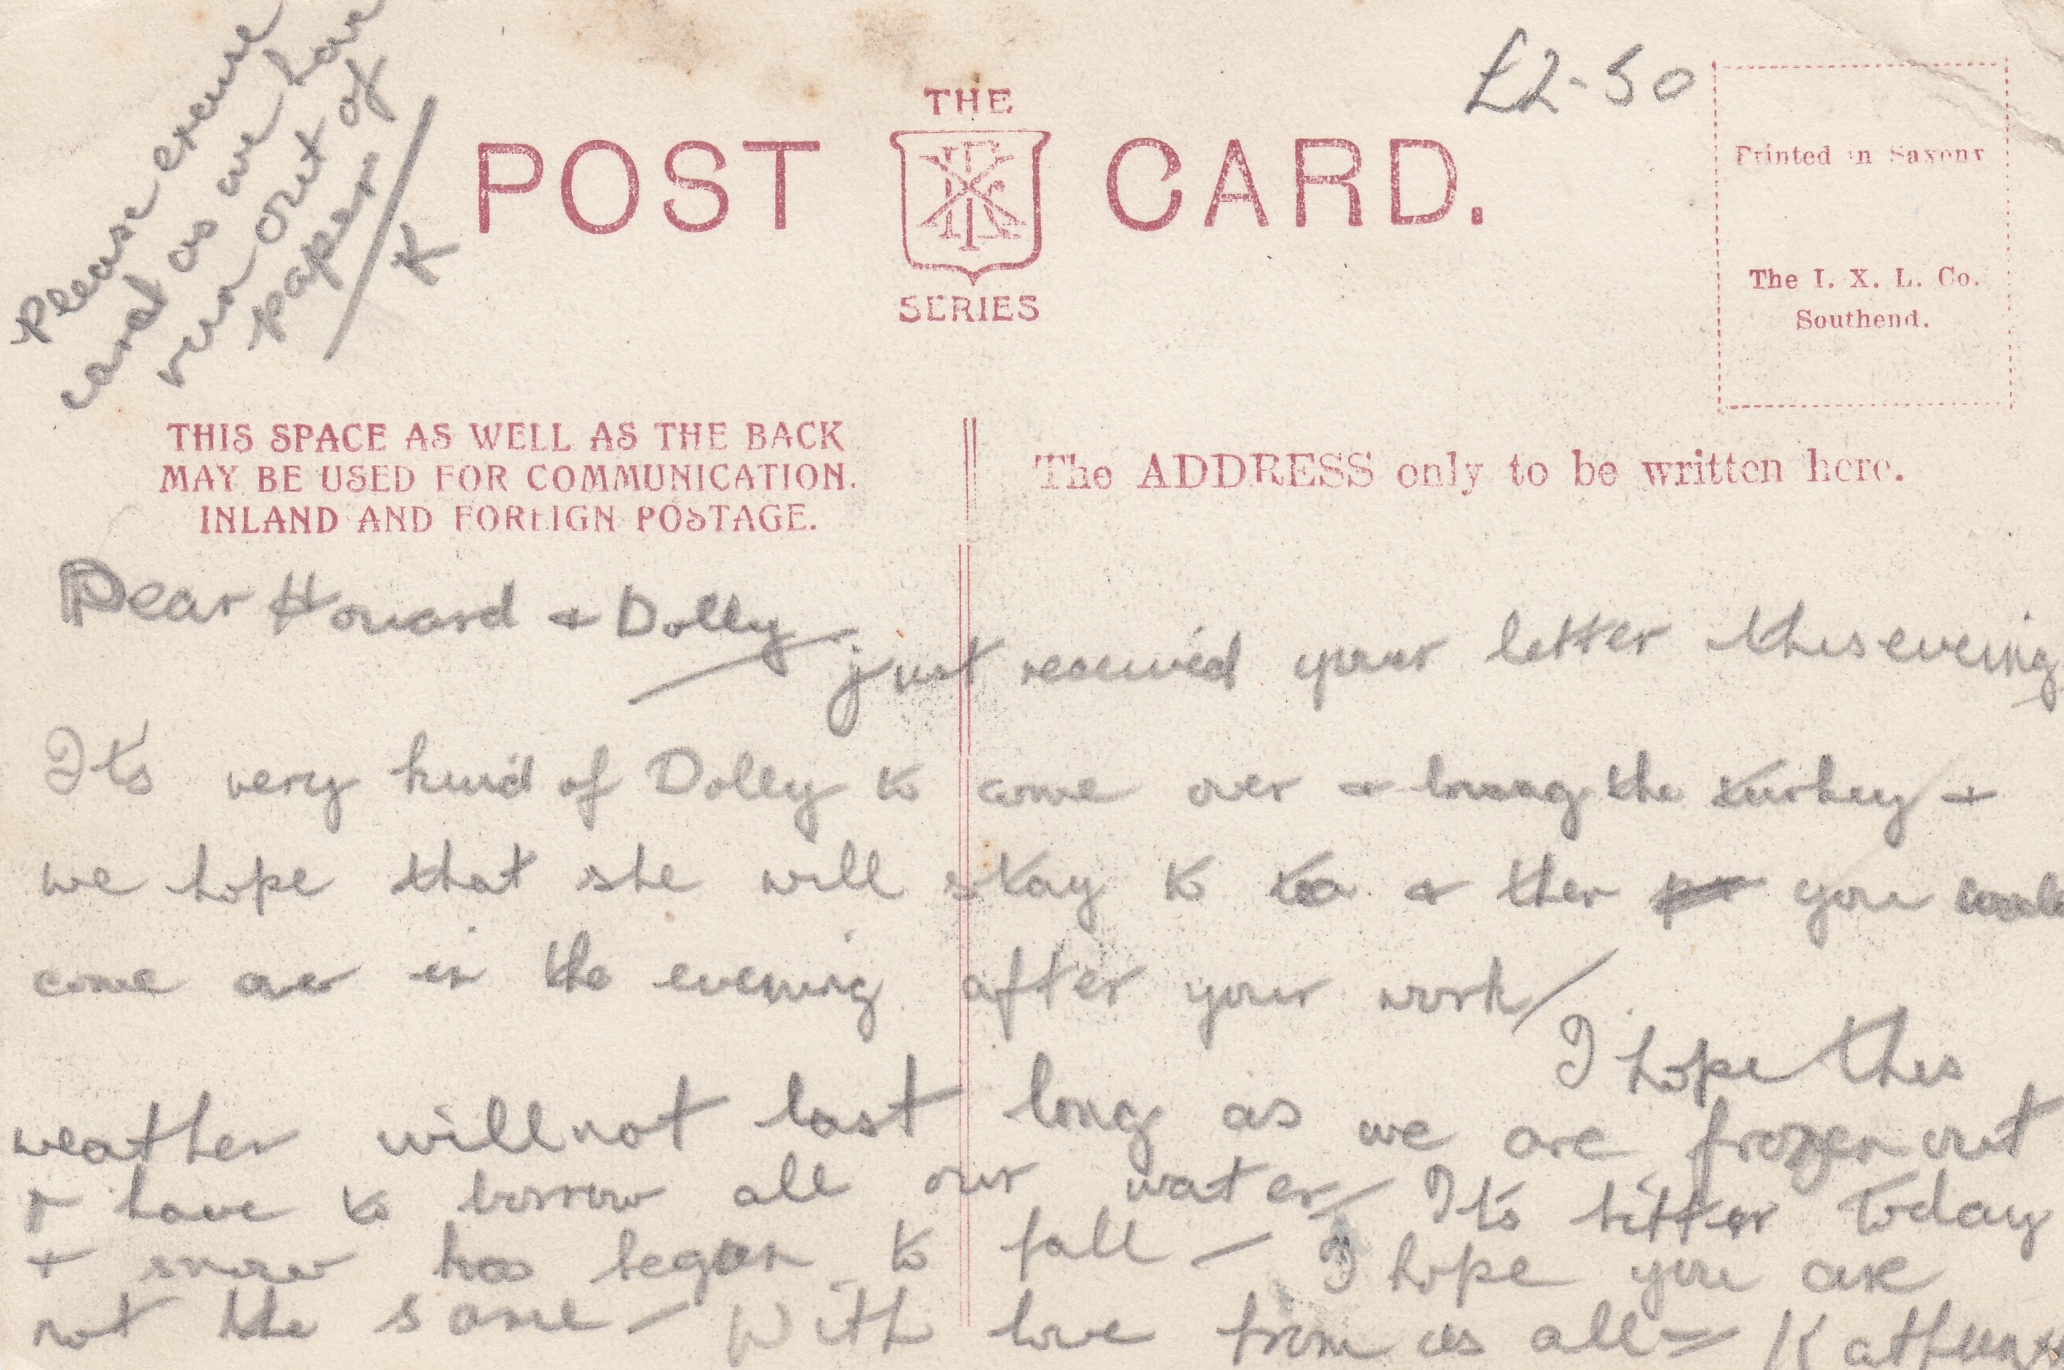 Please excuse
card as we have
run out of
paper /
K
£2-50
THE
POST CARD.
SERIES
Printed in Saxony
The I. X. L. Co.
Southend.
THIS SPACE AS WELL AS THE BACK
MAY BE USED FOR COMMUNICATION.
INLAND AND FOREIGN POSTAGE.
The ADDRESS only to be written here.
Dear Howard + Dolly
just received your letter this evening
It's very kind of Dolly to come over + bring the turkey +
we hope that she will stay to tea + then you could
come over in the evening after your work/
I hope this
weather will not last long as we are frozen out
+ have to borrow all our water/ Its bitter today
+ snow has began to fall — I hope you are
not the same — With love from us all —